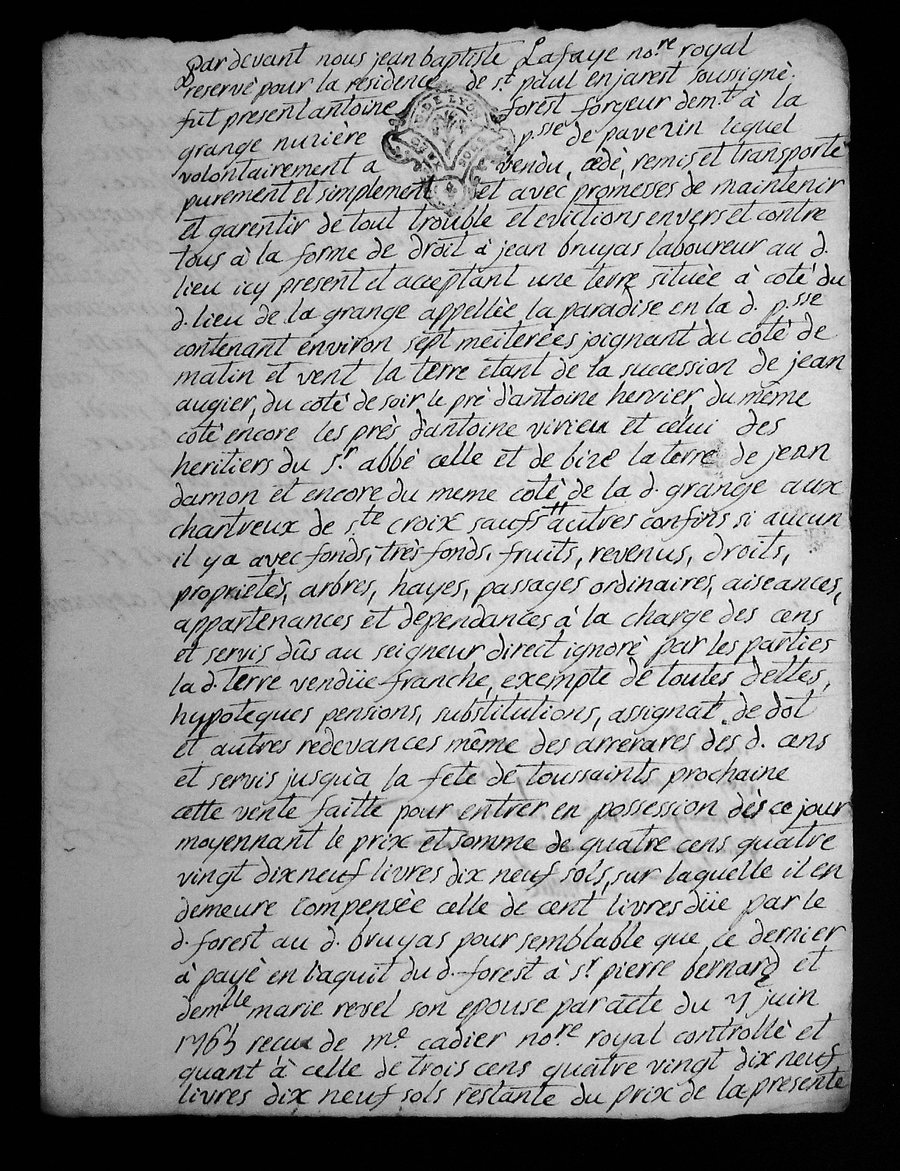 Pardevant nous jean baptiste Lafaye no.re royal
reservé pour la residence de st. paul enjarest soussigné.
fut present antoine forest forgeur dem.t à la
grange nuzière p.sse de pavezin lequel
volontairement a vendu, cedé, remis et transporté
purement et simplement et avec promesses de maintenir
et garentir de tout trouble et evictions envers et contre
tous à la forme de droit à jean bruyas laboureur au d.
lieu icy present et acceptant une terre située à coté du
d. lieu de la grange appellée la paradise en la d. p.sse
contenant environ sept meiterées joignant du coté de
matin et vent la terre etant de la succession de jean
augier, du coté de soir le pré d'antoine hervier du même
coté encore les prés d'antoine vivieu et celui des
heritiers du s.r abbé celle et de bize la terre de jean
darnon et encore du meme coté de la d. grange aux
chartreux de s.te croix saufs tt autres confins si aucun
il y a avec fonds, très fonds, fruits, revenus, droits,
proprietés, arbres, hayes, passages ordinaires, aiseances,
appartenances et dependances à la charge des cens
et servis dûs au seigneur direct ignoré par les parties
la d. terre vendüe franche, exempte de toutes dettes,
hypoteques pensions, substitutions, assignat de dot
et autres redevances même des arrerares des d. cens
et servis jusqu'a la fete de toussaints prochaine
cette vente faitte pour entrer en possession dès ce jour
moyennant le prix et somme de quatre cens quatre
vingt dix neuf livres dix neuf sols, sur laquelle il en
demeure compensée celle de cent livres düe par le
d. forest au d. bruyas pour semblable que ce dernier
à payé en l'aquit du d. forest à s.r pierre bernard et
dem.lle marie revel son epouse par acte du 7 juin
1765 recue de m.e cadier no.re royal controllé et
quant à celle de trois cens quatre vingt dix neuf
livres dix neuf sols restante du prix de la presente
DE LYON